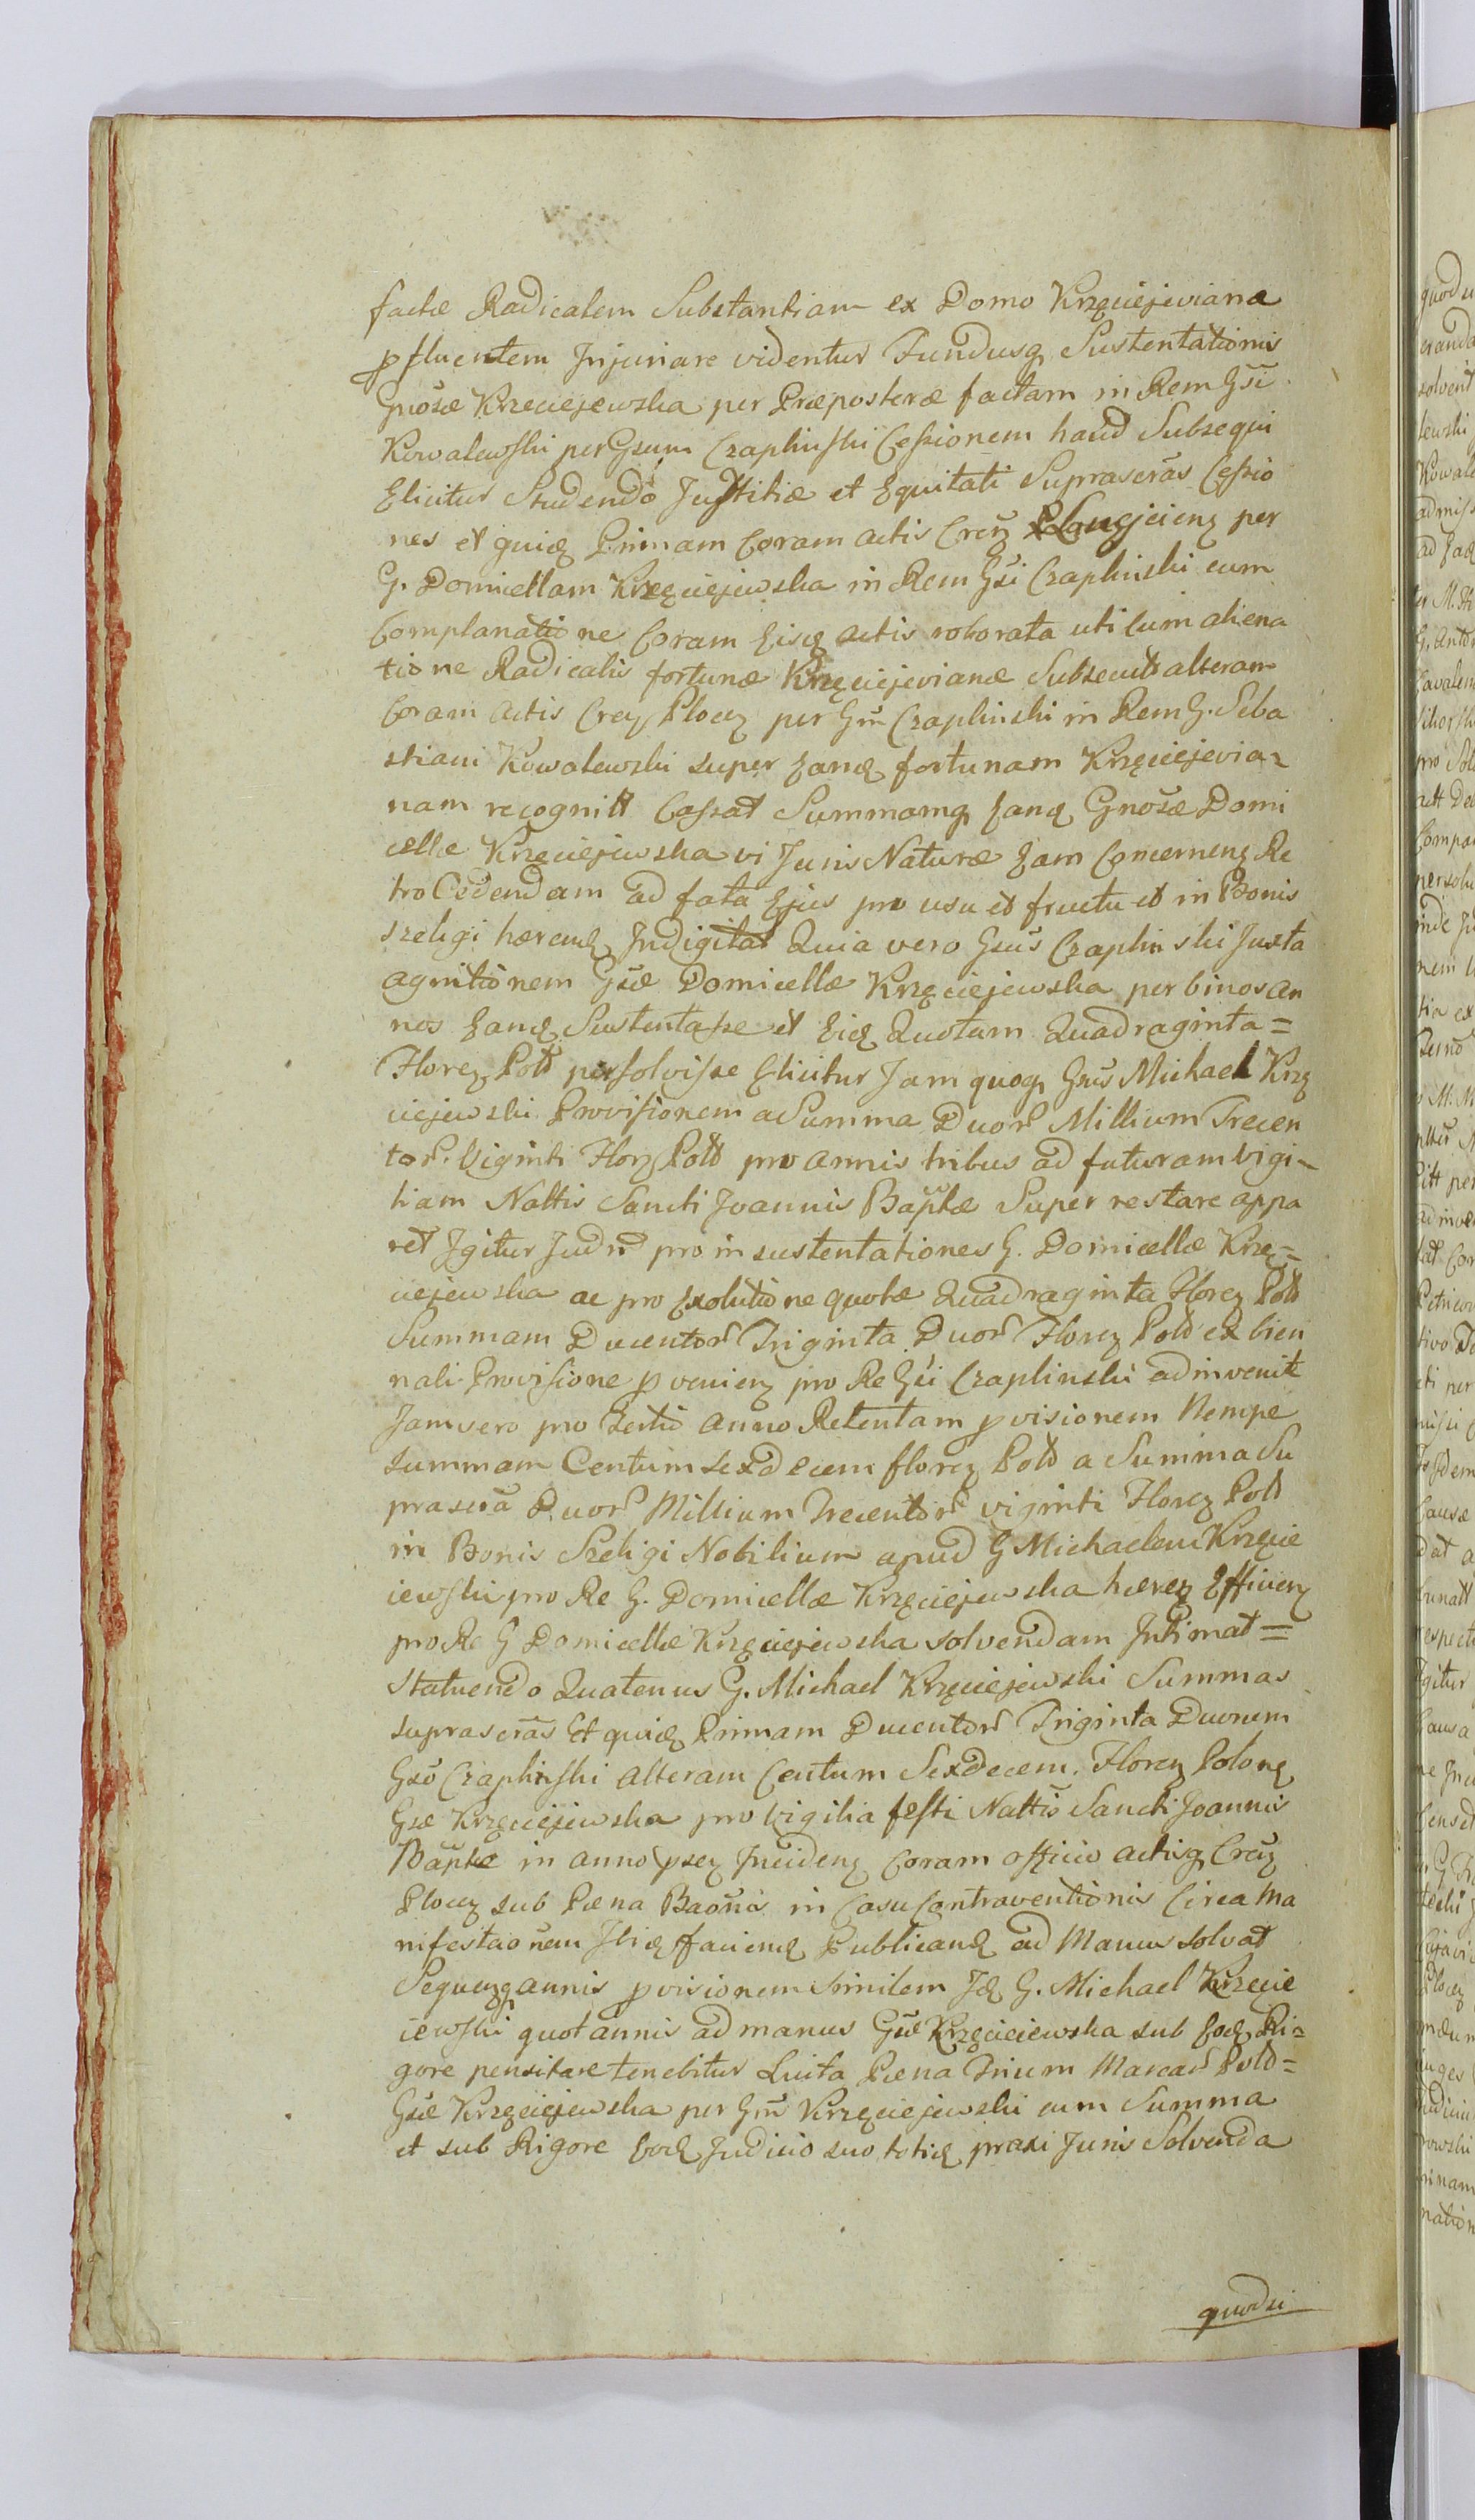 factæ Radicalem Substantiam ex Domo Krzęciejeviana
pfluentem Injuriare videntur Fundusq Sustentationis
Gnosæ Krzeciejewska per Præposteræ factam in Rem Gsi
Kowalewski per Gsum Czaplinski Cessionem haud Subsequi
Elicitur Studendo Justitiæ et Equitati Suprascras Cessio
nes et quidz Primam Coram actis Crcz per
G. Domicellam Krzęciejewska in Rem Gsi Czaplinski cum
Complanatione Coram Eisdz actis roborata uti cum aliena
tione Radicalis fortunæ Krzęciejevianæ Subsecutt alteram
Coram actis Crcz Plocz per Gm Czaplinski in Rem G. Seba
stiani Kowalewski super Eandz fortunam Krzęciejevia=
nam recognitt Cassat Summamq Eandz Gnosæ Domi
cellæ Krzęciejewska vi Juris Naturæ Eam Concernenz Re
tro Cedendam ad fata Ejus pro usu et fructu et in Bonis
Szeligi hærendz Indigitat Quia vero Gsus Czaplinski Juxta
agnitionem Gsæ Domicellæ Krzęciejewska per binos an
nos Eandz Sustentasse et Eidz Quotam Quadraginta=
Florez Poltt persolvisse Elicitur Jam quoq Gsus Michael Krzę
ciejewski Provisionem a Summa Duor Millium Trecen
tor. Viginti Florz Poltt pro annis tribus ad futuram vigi-
liam Nattis Sancti Joannis Baptæ Super restare appa
ret Igitur Judm pro in sustentationes G. Domicellæ Krzę=
ciejewska ac pro Exolutione quotæ Quadraginta Florez Poltt
Summam Ducentor Triginta Duor Florez Poltt ex bien
nali Provisione pvenienz pro Re Gsi Czaplinski adinvenit
Jam vero pro tertio anno Retentam pvisionem Nempe
summam Centum sexdecem florez Poltt a Summa Su
prascra Duor Millium Trecentor viginti Florez Poltt
in Bonis Szeligi Nobilium apud G Michaelem Krzęcie
iewski pro Re G. Domicellæ Krzęciejewska hærez Efficienz
pro Re G Domicellæ Krzęciejewska solvendam Intimat=
statuendo Quatenus G. Michael Krzęciejewski Summas
suprascras Et quidz Primam Ducentor Triginta Duorum
Gso Czaplinski alteram Centum Sexdecem. Florez Polonz
Gsæ Krzęciejewska pro Vigilia festi Nattis Sancti Joannis
Baptæ in anno psez Incidenz Coram officio actisq Crcz
Plocz sub Pæna Baonis in Casu Contraventionis Circa Ma
nifestaonem Ibidz faciendz Publicandz ad Manus solvat
Sequenzq annis pvisionem Similem Idz G. Michael Krzęcie
iewski quotannis ad manus Gsæ Krzęcieiewska sub Eodz Ri=
gore pensitare tenebitur Luita Pæna Trium Marcar Poltt=
Gsæ Krzęciejewska per Gm Krzęciejewski cum Summa
et sub Rigore Eodz Judicio suo totiez praxi Juris Solvenda
quodsi